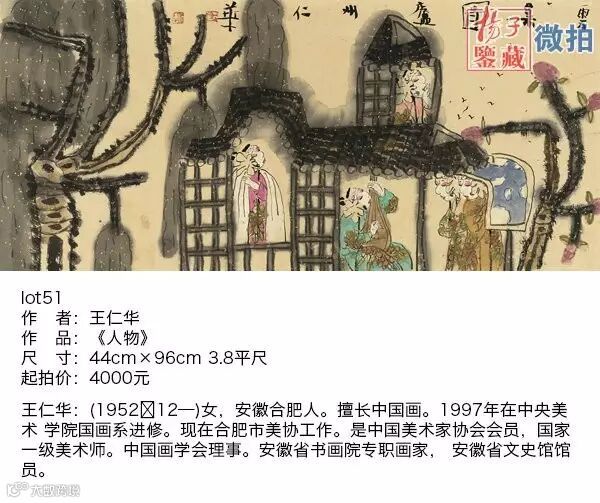 扬子
鉴藏
微拍
lot51
作 者：王仁华
作 品：《人物》
尺 寸：44cm×96cm 3.8平尺
起拍价：4000元
王仁华：(1952 12—)女，安徽合肥人。擅长中国画。1997年在中央美
术 学院国画系进修。现在合肥市美协工作。是中国美术家协会会员，国家
一级美术师。中国画学会理事。安徽省书画院专职画家， 安徽省文史馆馆
员。
大数跨境